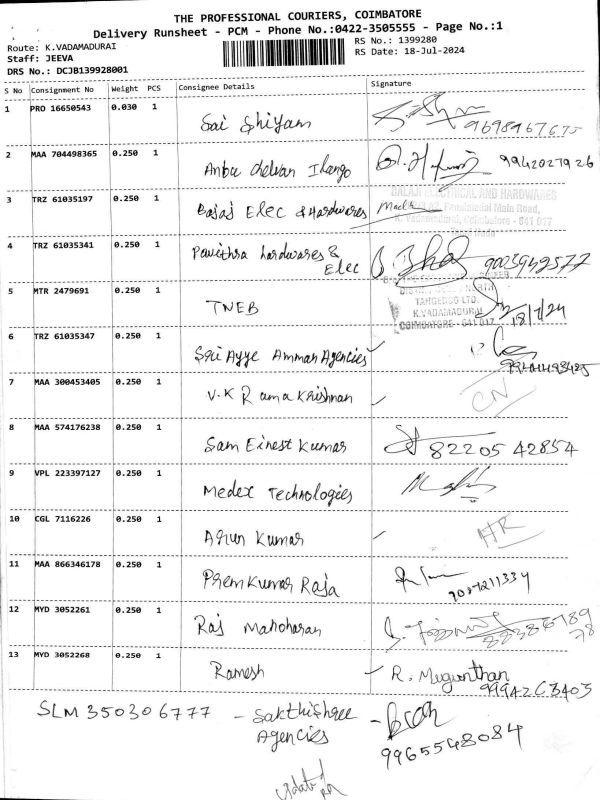 THE PROFESSIONAL COURIERS, COIMBATORE
Delivery Runsheet - PCM - Phone No.:0422-3505555 - Page No.:1
Route: K.VADAMADURAI
Staff: JEEVA
DRS No.: DCJB139928001
RS No.: 1399280
RS Date: 18-Jul-2024
S No Consignment No Weight PCS Consignee Details Signature
1 PRO 16650543 0.030 1 Sai Shiyam 9698967675
2 MAA 704498365 0.250 1 Anbu chelvan Ilango 9942027926
3 TRZ 61035197 0.250 1 Bajaj Elec & Hardwares
BALAJI ELECTRICAL AND HARDWARES
Main Road,
K. Vadamadurai, Coimbatore - 641 017
Tamil Nadu
4 TRZ 61035341 0.250 1 Pavithra hardwares &
Elec 9003942577
5 MTR 2479691 0.250 1 TNEB
TANGEDCO LTD.
K.VADAMADURAI
COIMBATORE - 641 017
18/7/24
6 TRZ 61035347 0.250 1 Sri Ayye Amman Agencies
7 MAA 300453405 0.250 1 V.K Rama Krishnan CN
8 MAA 574176238 0.250 1 Sam Einest Kumar 8220542854
9 VPL 223397127 0.250 1 Medex Technologies
10 CGL 7116226 0.250 1 Arun Kumar HR
11 MAA 866346178 0.250 1 Prem Kumar Raja 9087211334
12 MYD 3052261 0.250 1 Raj Manoharan
13 MYD 3052268 0.250 1 Ramesh R. Mugunthan
9994263403
SLM 350306777 - Sakthishree
Agencies
9965548084